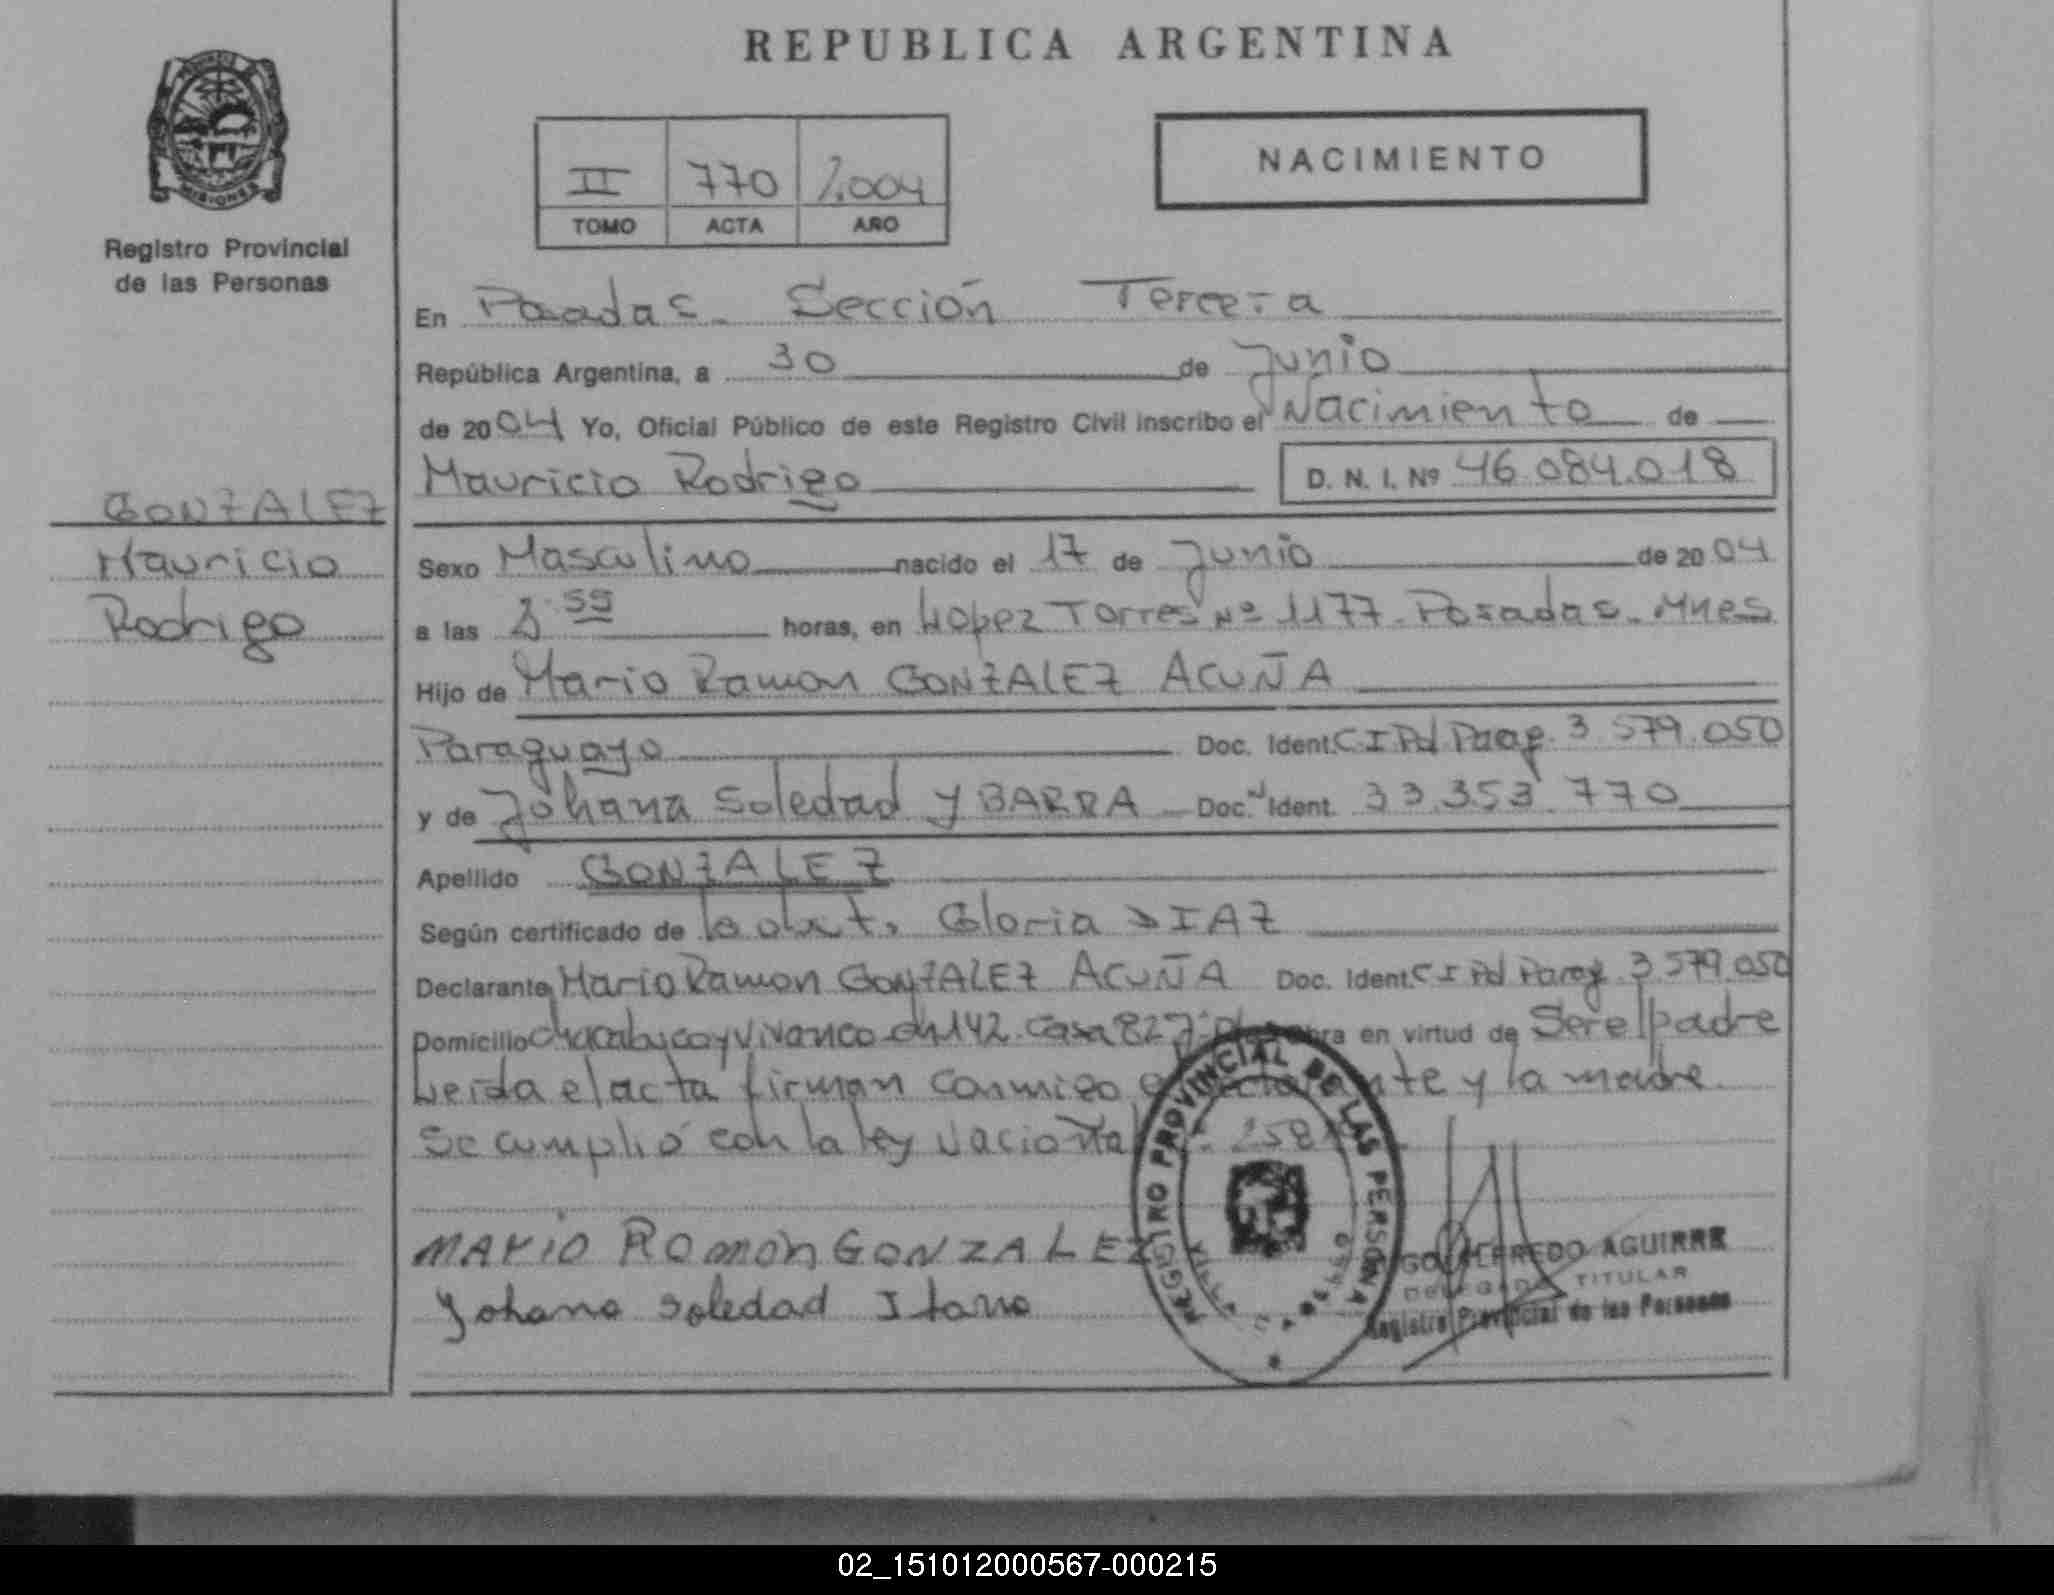 REPUBLICA ARGENTINA
NACIMIENTO
II 770 2.004
TOMO ACTA AÑO
MISIONES
Registro Provincial
de las Personas
GONZALEZ
Mauricio
Rodrigo
En Posadas - Sección Tercera
República Argentina, a 30 de Junio
de 2004 Yo, Oficial Público de este Registro Civil inscribo el Nacimiento de
Mauricio Rodrigo D. N. I. Nº 46.084.018
Sexo Masculino nacido el 17 de Junio de 2004
a las 8:59 horas, en Lopez Torres Nº 1177 - Posadas - Mnes
Hijo de Mario Ramon GONZALEZ ACUÑA
Paraguayo Doc. Ident. C I Pol Parag. 3.579.050
y de Johana Soledad YBARRA Doc. Ident. 33.353.770
Apellido GONZALEZ
Según certificado de la obst. Gloria DIAZ
Declarante Mario Ramon GONZALEZ ACUÑA Doc. Ident. C I Pol Parag. 3.579.050
Domicilio Chacabuco y Vivanco - Ch 142 - Casa 827 - obra en virtud de Ser el padre
Leída el acta firman conmigo el declarante y la madre
Se cumplió con la ley Nacional
MARIO ROMON GONZALEZ
Yohana Soledad
REGISTRO PROVINCIAL DE LAS PERSONAS
ALFREDO AGUIRRE
DELEGADO TITULAR
Registro Provincial de las Personas
02_151012000567-000215